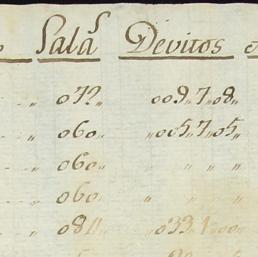 Salaˢ Devitos
" 072 009"7"08"
" 060" "005"7"05"
" 060" " " "
" 060" " " "
" 080" "033"1"00"